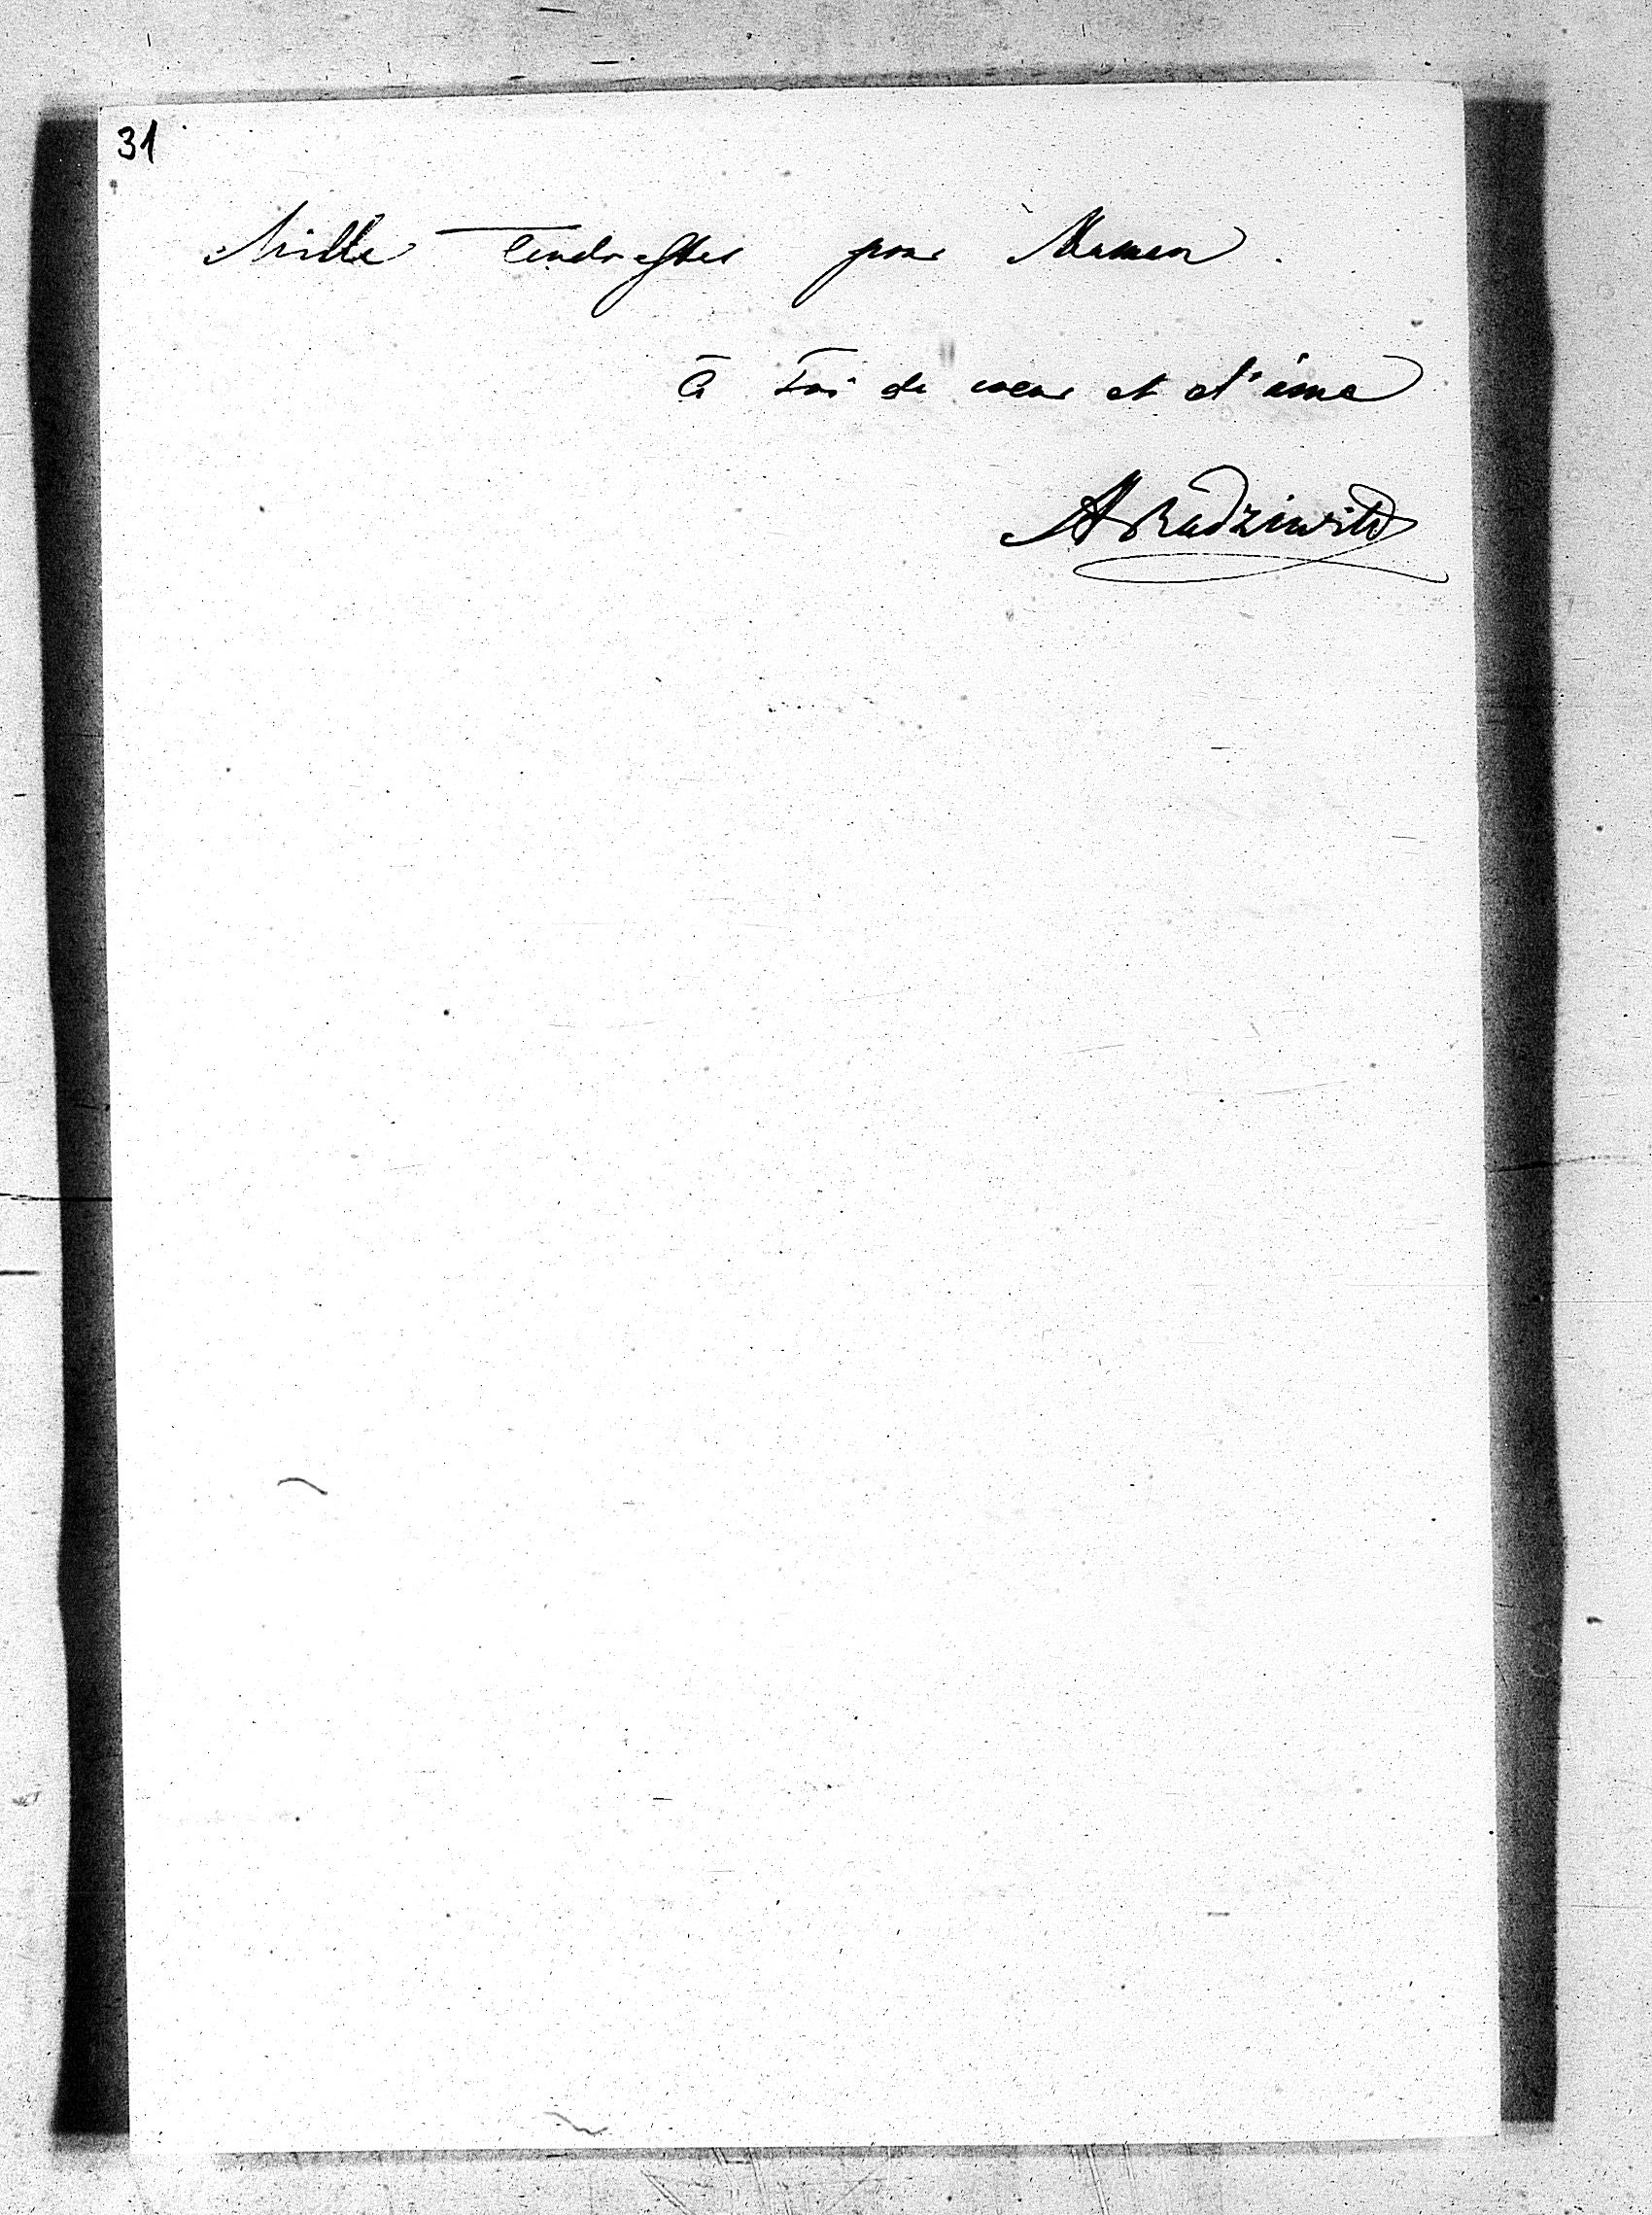 31
Mille tendresses pour Maman.
à toi de coeur et d'âme
ARadziwiłł